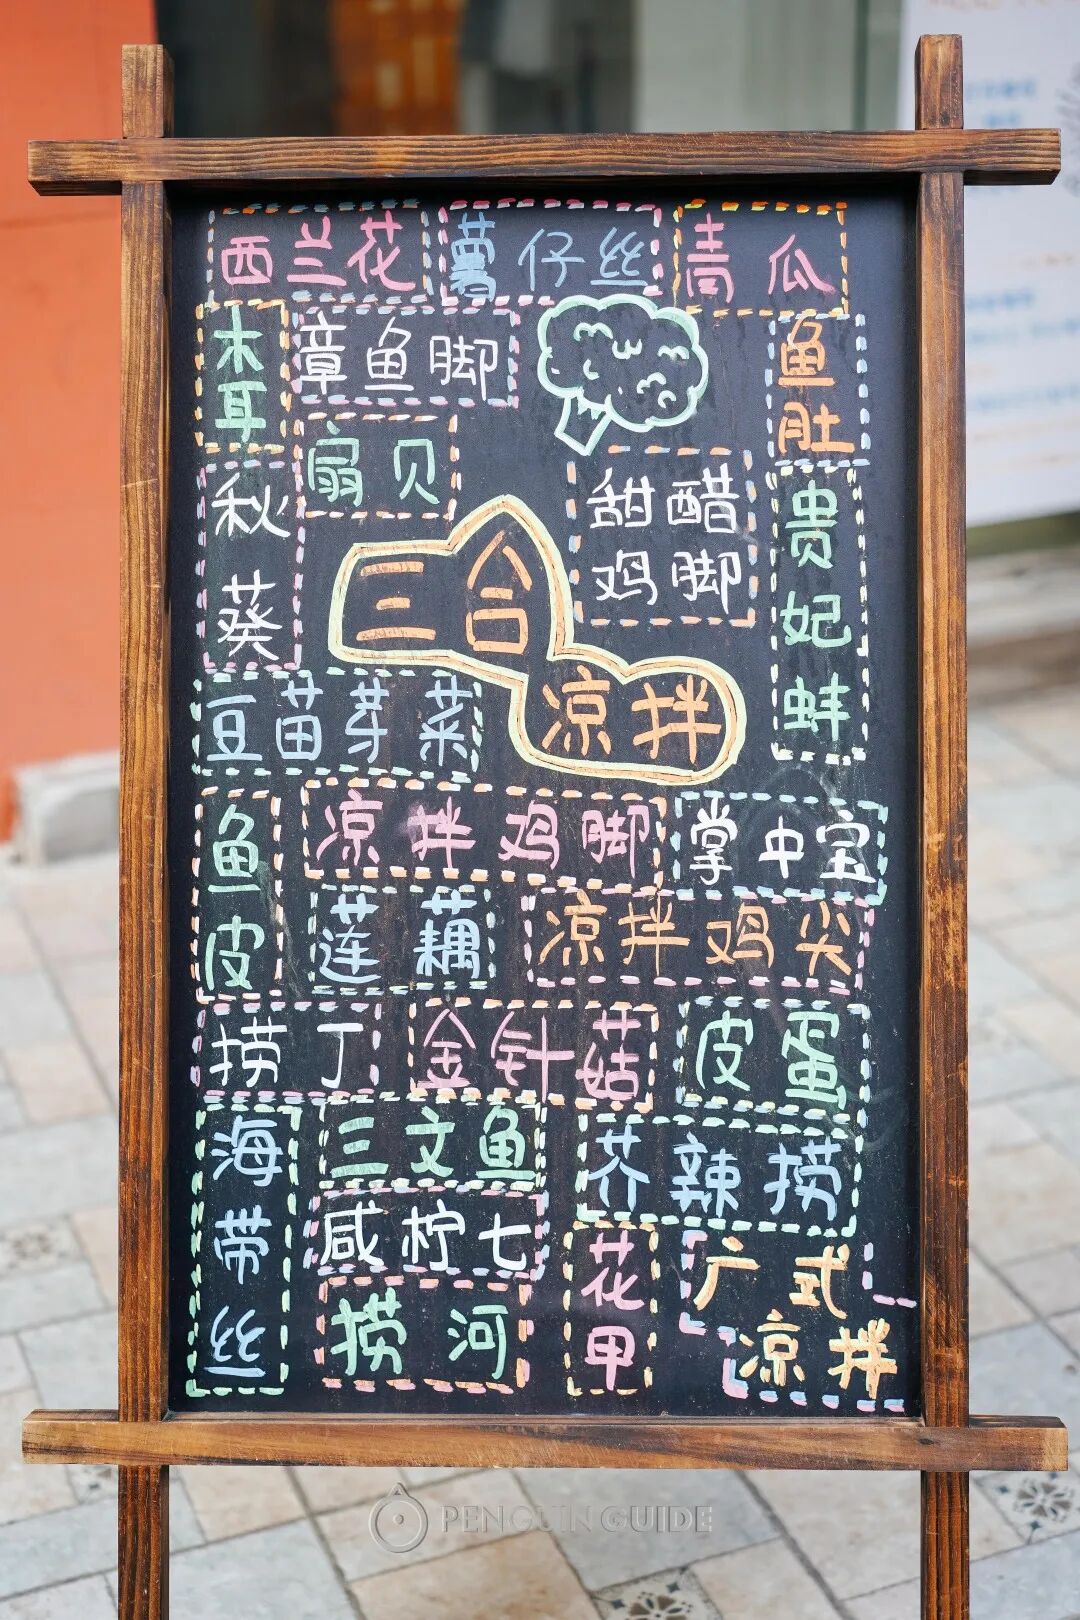 西兰花 薯仔丝 青瓜
木耳
章鱼脚
鱼肚
扇贝
秋葵
甜醋
鸡脚
贵妃蚌
三合
凉拌
豆苗芽菜
鱼皮
凉拌鸡脚
掌中宝
莲藕
凉拌鸡尖
捞丁
金针菇
皮蛋
海带丝
三文鱼
芥辣捞
咸柠七
花甲
广式
凉拌
捞河
PENGUIN GUIDE